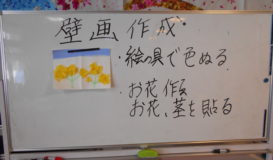 壁画作成
・絵の具で色ぬる
・お花作る
お花、茎を貼る